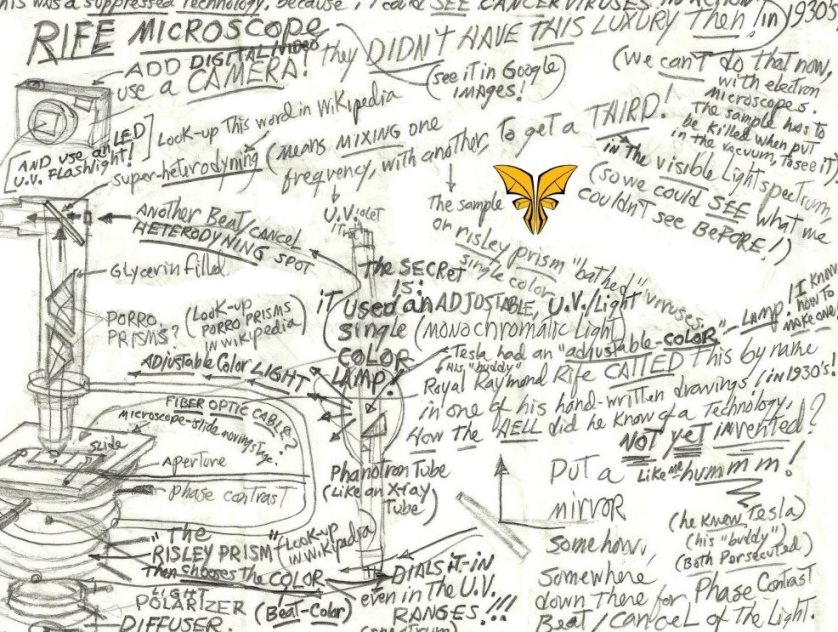 This was a suppressed Technology, Because, I could SEE CANCER VIRUSES IN ACTION
RIFE MICROSCOPE
They DIDN'T HAVE THIS LUXURY Then! in 1930's
ADD DIGITAL/VIDEO
use a CAMERA!
(see it in Google
IMAGES!)
(we can't do that now,
with electron
microscopes.
The sample has to
be killed when put
in the vacuum, to see it)
AND use an LED
U.V. Flashlight!
Look-up This word in Wikipedia
super-heterodyning (means MIXING one
frequency, with another, To get a THIRD!
IN The visible Light spectrum,
(so we could SEE what we
couldn't see BEFORE!)
U.V.iolet
The sample
or risley prism "bathed" viruses.
single color
ANOTHER Beat/cancel
HETERODYNING SPOT
Glycerin filled
PORRO
PRISMS?
(Look-up
PORRO PRISMS
in wikipedia)
Adjustable Color LIGHT
The SECRET
IS:
IT used an ADJUSTABLE, U.V./Light
single (monochromatic Light)
COLOR
LAMP!
LAMP! (I know
how to
make one!)
Tesla had an "adjustable-COLOR"
His "buddy"
Royal Raymond Rife CALLED This by name
in one of his hand-written drawings! in 1930's!
How the HELL did he know of a Technology,
NOT yet invented?
Like me hummm!
FIBER OPTIC CABLE?
microscope-slide moving stage.
Slide
Aperture
Phase contrast
Phanotron Tube
(Like an X-ray
Tube)
Put a
mirror
somehow,
somewhere
down there for Phase Contrast
Beat/cancel of The Light.
(he knew Tesla)
(his "buddy")
(Both Persecuted)
"The
RISLEY PRISM"
(Look-up
in Wikipedia)
Then chooses the COLOR
(Beat-Color)
DIALS iT-in
even in the U.V.
RANGES!!!
(spectrum)
LIGHT
POLARIZER
DIFFUSER.